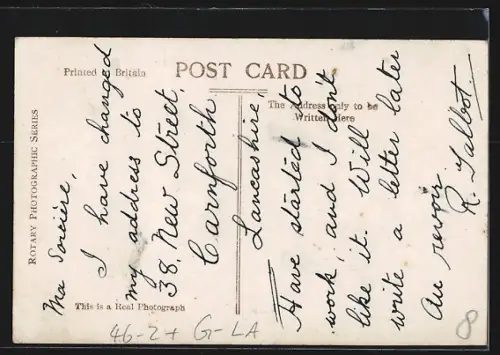 Printed in Britain
POST CARD
The Address only to be
Written Here
ROTARY PHOTOGRAPHIC SERIES
This is a Real Photograph
Ma Sorcière,
I have changed
my address to
38, New Street,
Carnforth
Lancashire,
Have started to
work, and I don't
like it. Will
write a letter later
Au revoir
R. Talbot.
46-2+ G-LA
8